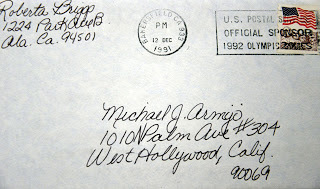 Roberta Bripp
1224 Park Ave B
Ala. Ca. 94501
BAKERSFIELD CA 933
PM
12 DEC
1991
U.S. POSTAL
OFFICIAL SPONSOR
1992 OLYMPIC GAMES
Michael J. Armijo
1010 N Palm Ave #304
West Hollywood, Calif.
90069